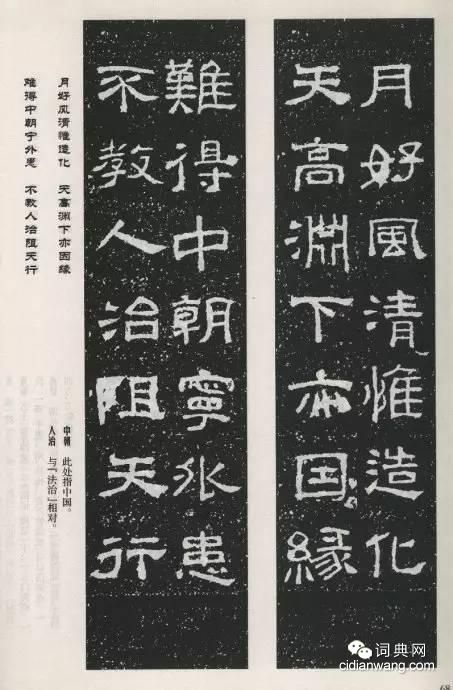 月好風清惟造化
天高淵下亦因緣
難得中朝寧外患
不教人治阻天行
月好风清惟造化 天高渊下亦因缘
难得中朝宁外患 不教人治阻天行
中朝 此处指中国。
人治 与「法治」相对。
词典网
cidianwang.com
68